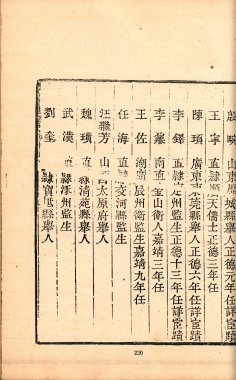 殷暾山東歷城縣舉人正德元年任詳宦蹟
王寧直隷天儒士正德三年任
陳頊廣東東莞縣舉人正德六年任詳宦蹟
李鐸直隷定州監生正德十三年任詳宦蹟
李蕃南直金山衛人嘉靖三年任
王佐湖廣辰州衛監生嘉靖九年任
任海直交河縣監生
汪
芳山西太原府舉人
魏璜直隷清苑縣舉人
武漢直隷涿州監生
劉奎隷寶坻縣舉人
220